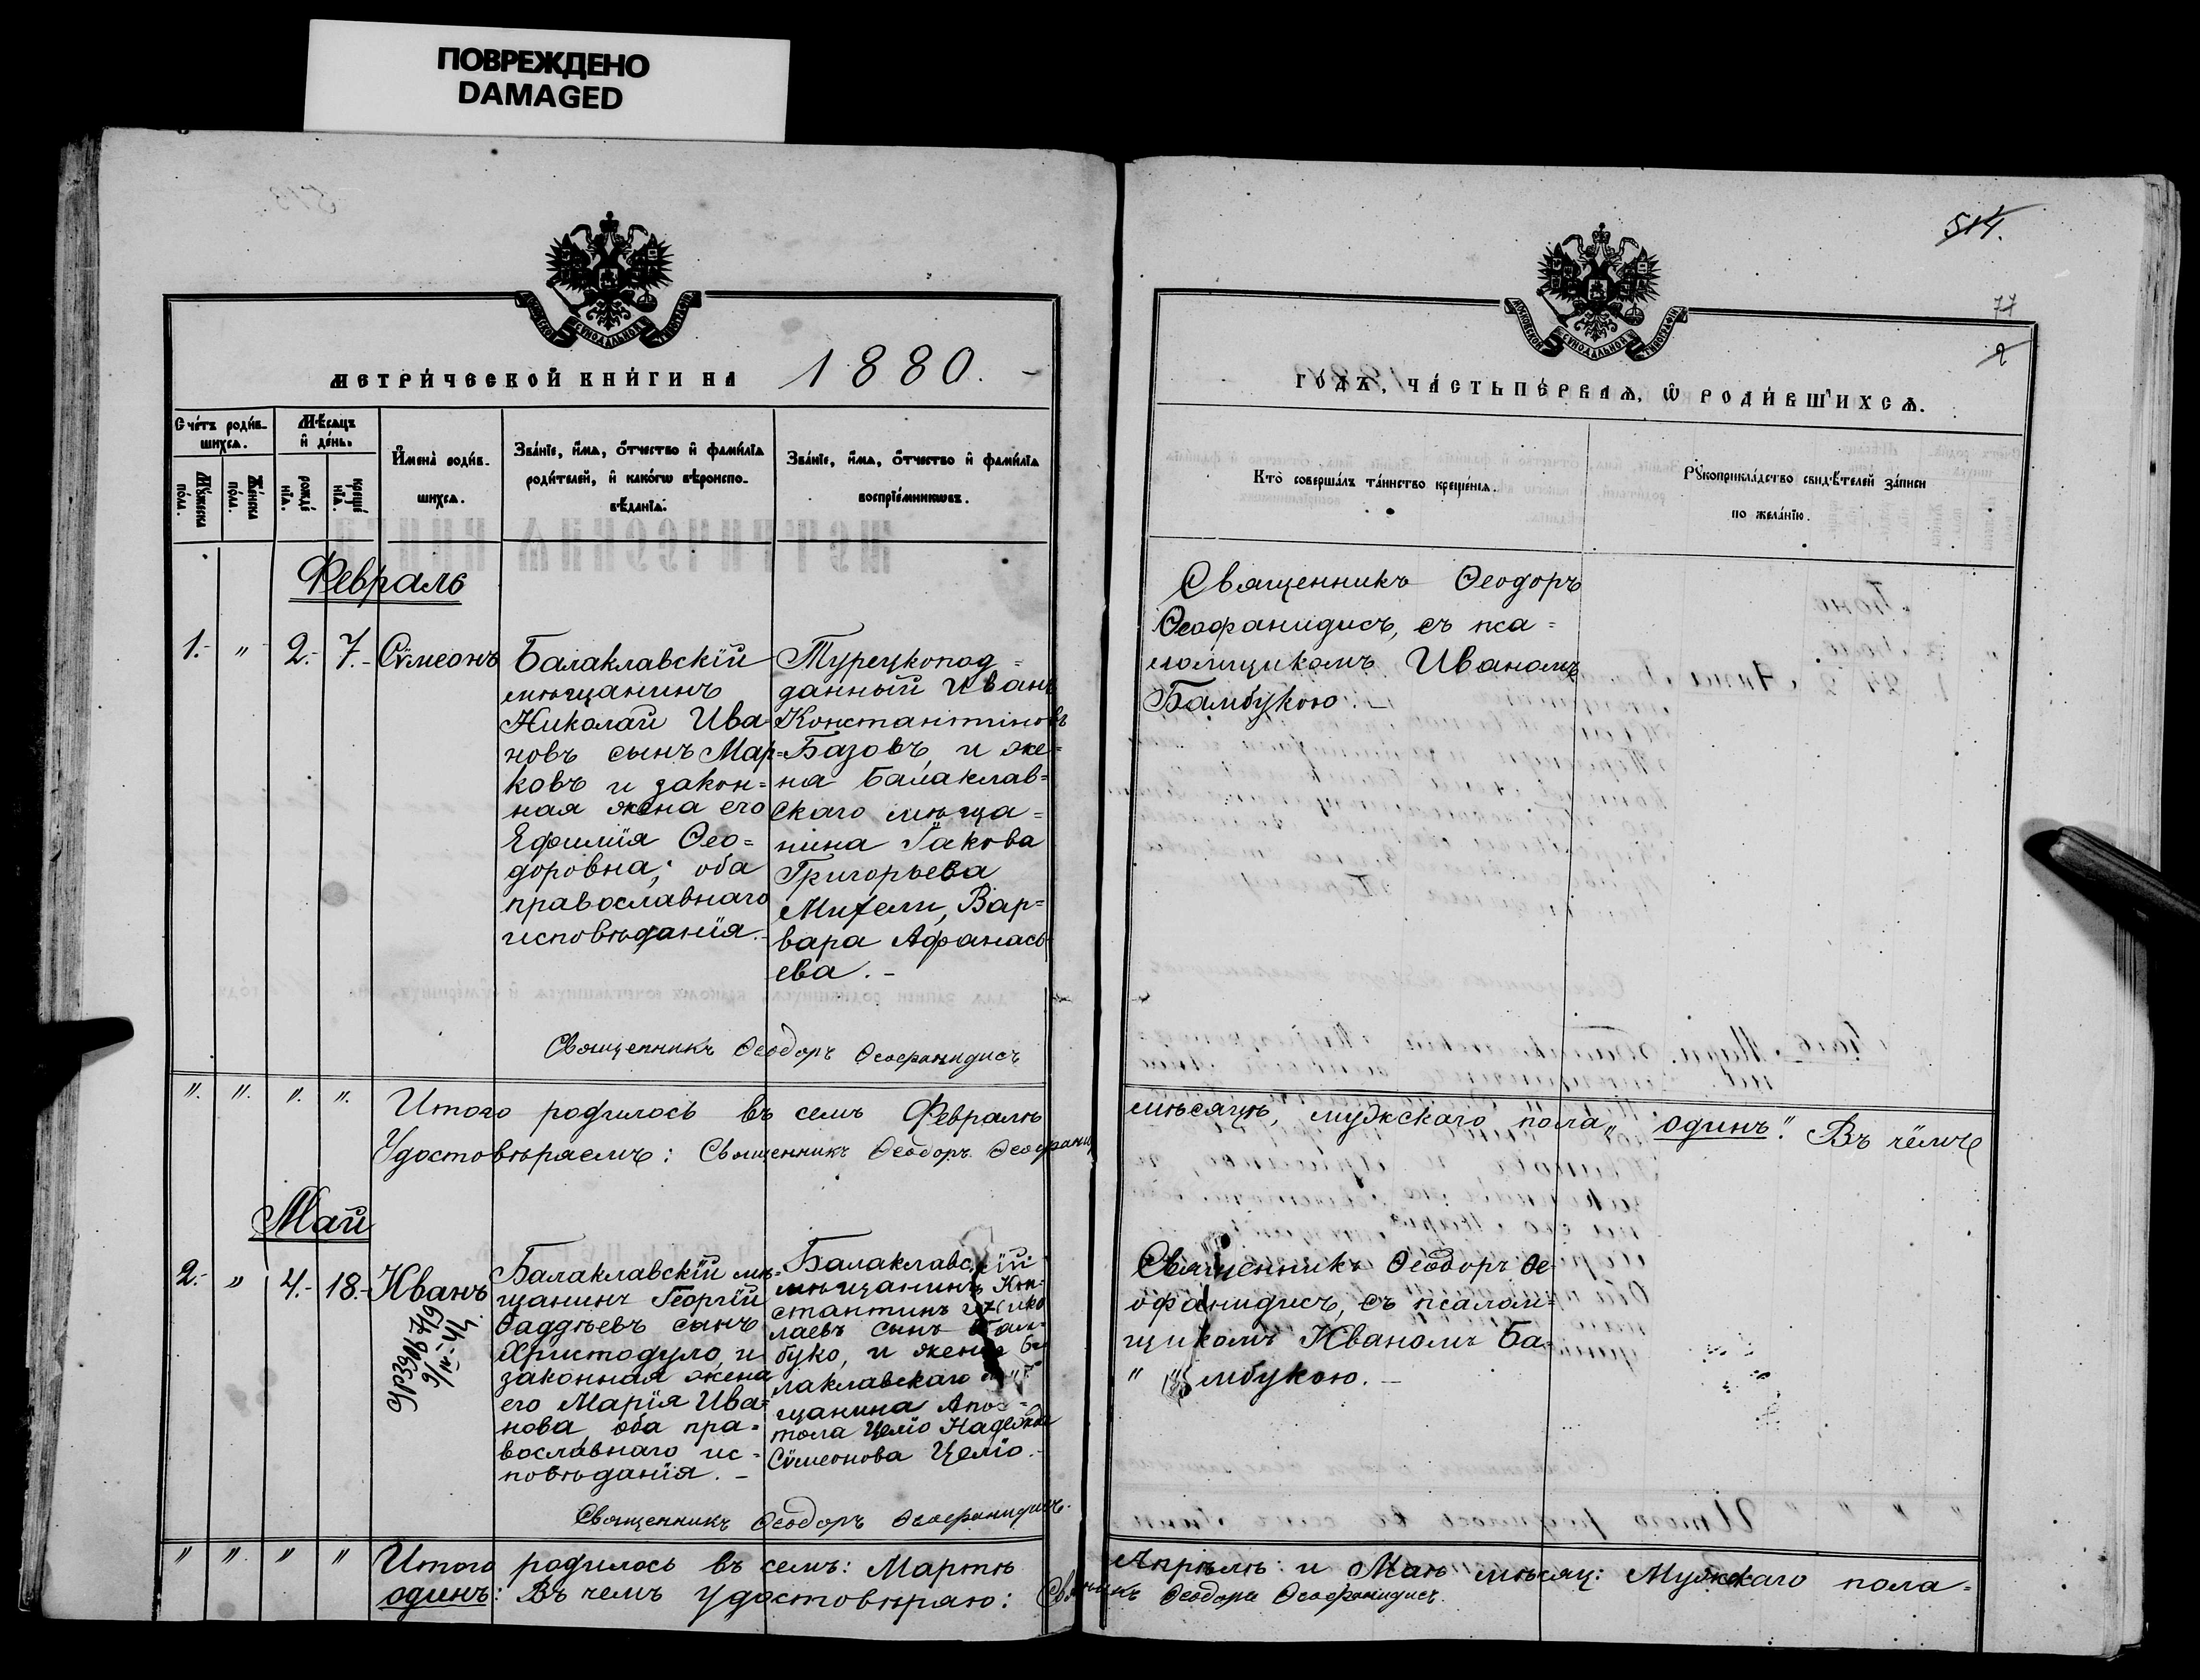 ПОВРЕЖДЕНО
DAMAGED
514.
77
2
МОСКОВСКОЙ СѴНОДАЛЬНОЙ ТИПОГРАФІИ
МЕТРИ́ЧЕСКОЙ КНИ́ГИ НА 1880.
Сче́тъ роди́в-
шихся.
Мѣ́сяцъ
и҆ де́нь.
Му́жеска
по́ла.
Же́нска
по́ла.
рожде́
нїѧ.
креще́
нїѧ.
И҆мена̀ роди́в-
шихся.
Зва́нїе, и҆́мѧ, ѻ҆́тчество и҆ фами́лїѧ
роди́телей, и҆ како́гѡ вѣроиспо-
вѣ́данїѧ.
Зва́нїе, и҆́мѧ, ѻ҆́тчество и҆ фами́лїѧ
воспрїе́мникѡвъ.
Февраль
1.- " 2.- 7.- Сѵмеонъ
Балаклавскій
мѣщанинъ
Николай Ива
новъ сынъ Мар=
ковъ и закон=
ная жена его
Ефимія Ѳео=
доровна; оба
православнаго
исповѣданія.-
Турецкопод=
данный Иванъ
Константиновъ
Базовъ, и же=
на Балаклав=
скаго мѣща=
нина Іакова
Григорьева
Вар=
вара Афанась
ева.-
Священникъ Ѳеодоръ Ѳеофанидисъ
". ". ". ". Итого родилось въ семъ Февралѣ
Удостовѣряемъ: Священникъ Ѳеодоръ
Май
2.- " 4.- 18.- Иванъ
Балаклавскій мѣ-
щанинъ Георгій
Ѳаддѣевъ сынъ
Христодуло, и
законная жена
его Марія Ива=
нова, оба пра=
вославнаго ис=
повѣданія.-
Балаклавскій
мѣщанинъ Кон-
стантинъ Нико
лаевъ сынъ Бам-
буко, и жена Ба
лаклавскаго мѣ
щанина Апос=
тола Целіо Надежда
Сѵмеонова Целіо.-
Священникъ Ѳеодоръ Ѳеофанидисъ.
" " " " Итого родилось въ семъ: Мартѣ
одинъ: Въ чемъ удостовѣряю:
МОСКОВСКОЙ СѴНОДАЛЬНОЙ ТИПОГРАФІИ
ГО́ДЪ, ЧА́СТЬ ПЕ́РВАѦ, Ѽ РОДИ́ВШИХСѦ.
Кто̀ соверша́лъ та́инство креще́нїѧ.
Рꙋкоприкла́дство свидѣ́телей за́писи
по жела́нїю.
Священникъ Ѳеодоръ
Ѳеофанидисъ, съ пса=
ломщикомъ Иваномъ
Бамбукою.-
мѣсяцѣ, мужскаго пола „одинъ." Въ чёмъ
Священникъ Ѳеодоръ Ѳе-
офанидисъ, съ псалом=
щикомъ Иваномъ Ба=
" " мбукою.-
Апрѣлѣ: и Маѣ мѣсяц: Мужскаго пола=
Ѳеодоръ Ѳеофанидисъ.